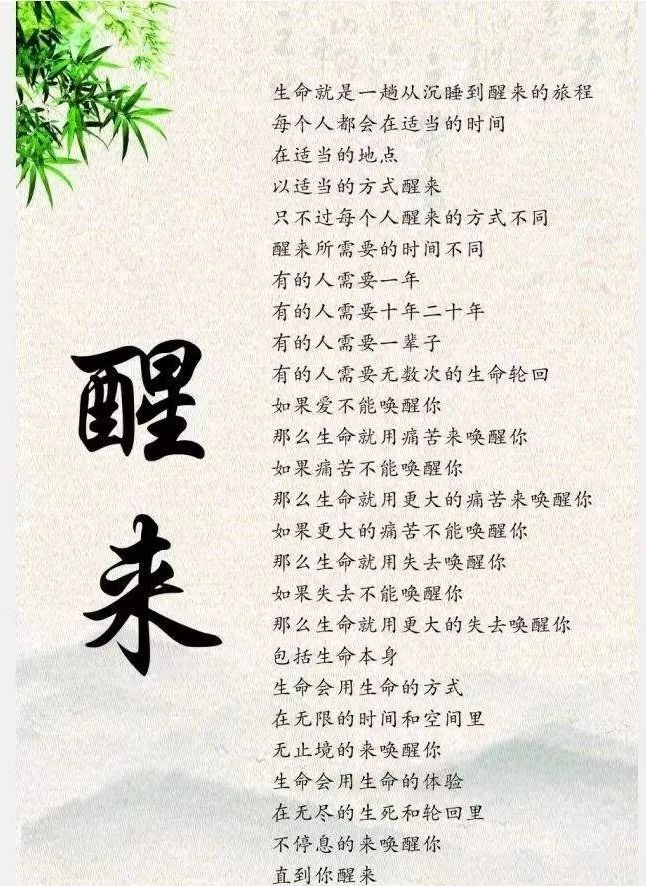 醒来
生命就是一趟从沉睡到醒来的旅程
每个人都会在适当的时间
在适当的地点
以适当的方式醒来
只不过每个人醒来的方式不同
醒来所需要的时间不同
有的人需要一年
有的人需要十年二十年
有的人需要一辈子
有的人需要无数次的生命轮回
如果爱不能唤醒你
那么生命就用痛苦来唤醒你
如果痛苦不能唤醒你
那么生命就用更大的痛苦来唤醒你
如果更大的痛苦不能唤醒你
那么生命就用失去唤醒你
如果失去不能唤醒你
那么生命就用更大的失去唤醒你
包括生命本身
生命会用生命的方式
在无限的时间和空间里
无止境的来唤醒你
生命会用生命的体验
在无尽的生死和轮回里
不停息的来唤醒你
直到你醒来